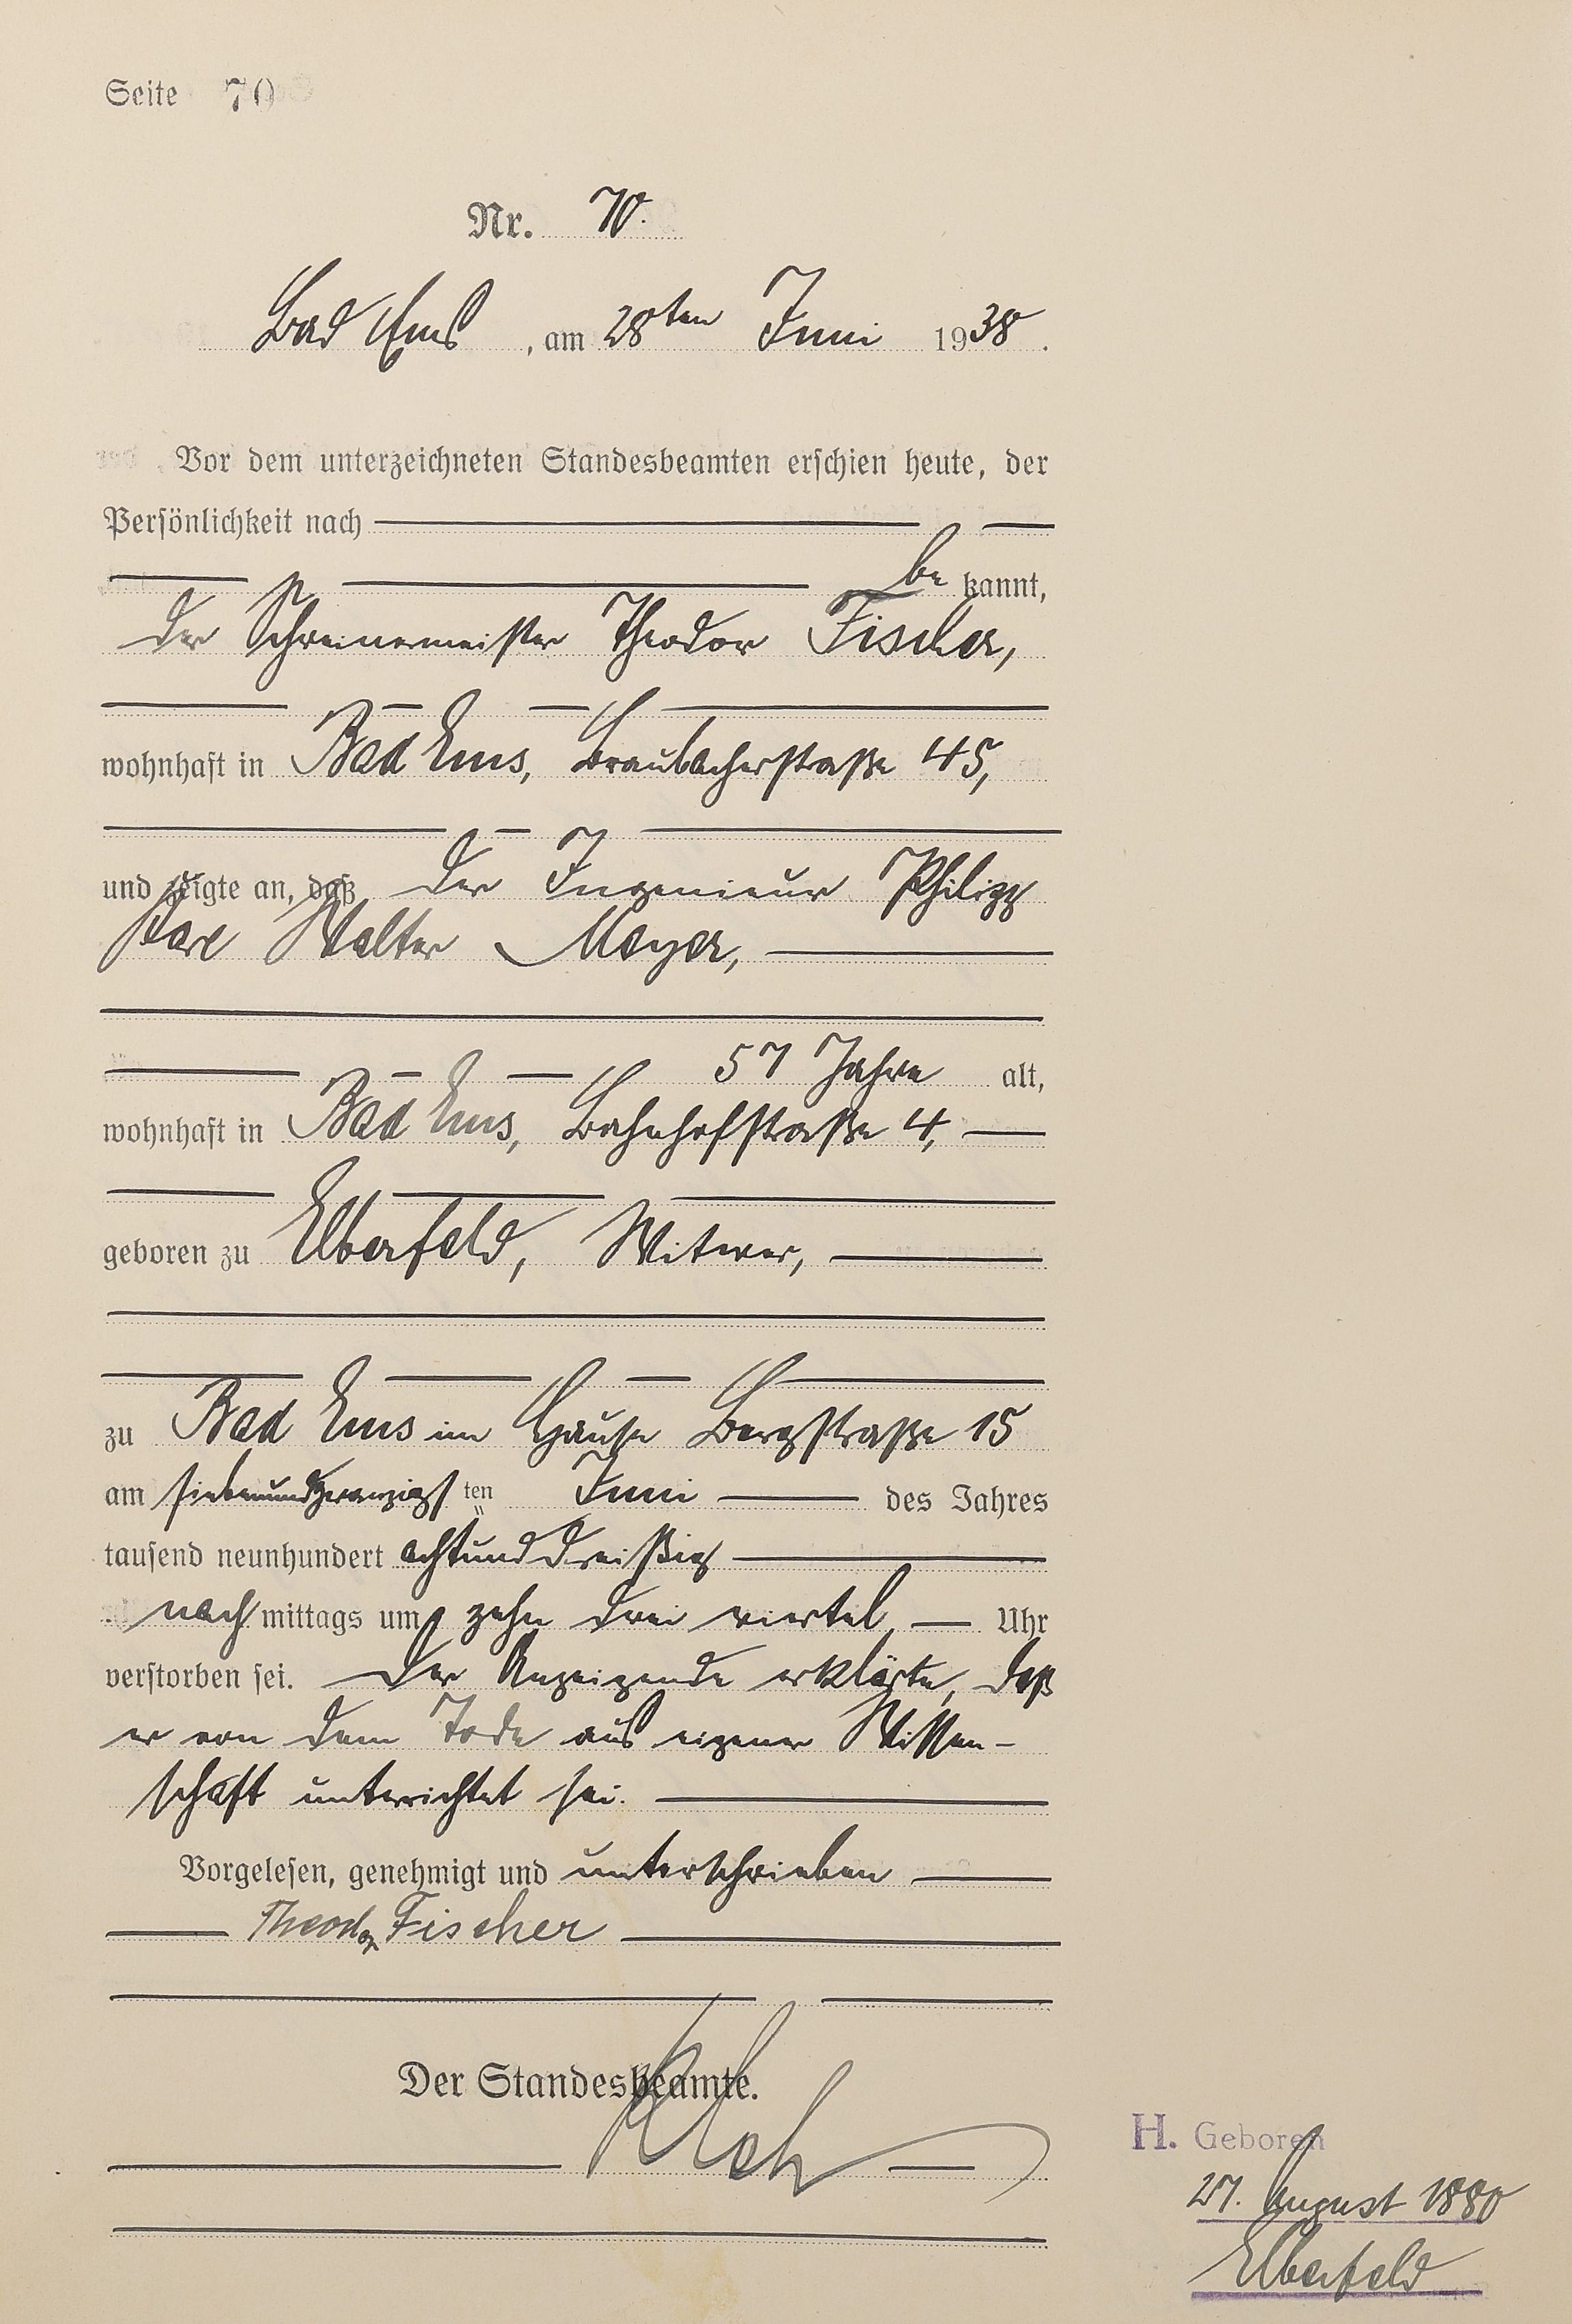 Seite 70
Nr. 70.
Bad Ems, am 28ten Juni 1938.
Vor dem unterzeichneten Standesbeamten erschien heute, der
Persönlichkeit nach
be kannt,
der Schreinermeister Theodor Fischer,
wohnhaft in Bad Ems, Braubacherstraße 45,
und zeigte an, daß der Ingenieur Philipp
Karl Walter Meyer,
57 Jahre alt,
wohnhaft in Bad Ems, Bahnhofstraße 4,
geboren zu Elberfeld, Witwer,
zu Bad Ems im Hause Bergstraße 15
am siebenundzwanzigsten Juni des Jahres
tausend neunhundert achtunddreißig
nachmittags um zehn drei viertel Uhr
verstorben sei. Der Anzeigende erklärte, daß
er von dem Tode aus eigener Wissen-
schaft unterrichtet sei.
Vorgelesen, genehmigt und unterschrieben
Theodor Fischer
Der Standesbeamte.
H. Geboren
27. August 1880
Elberfeld